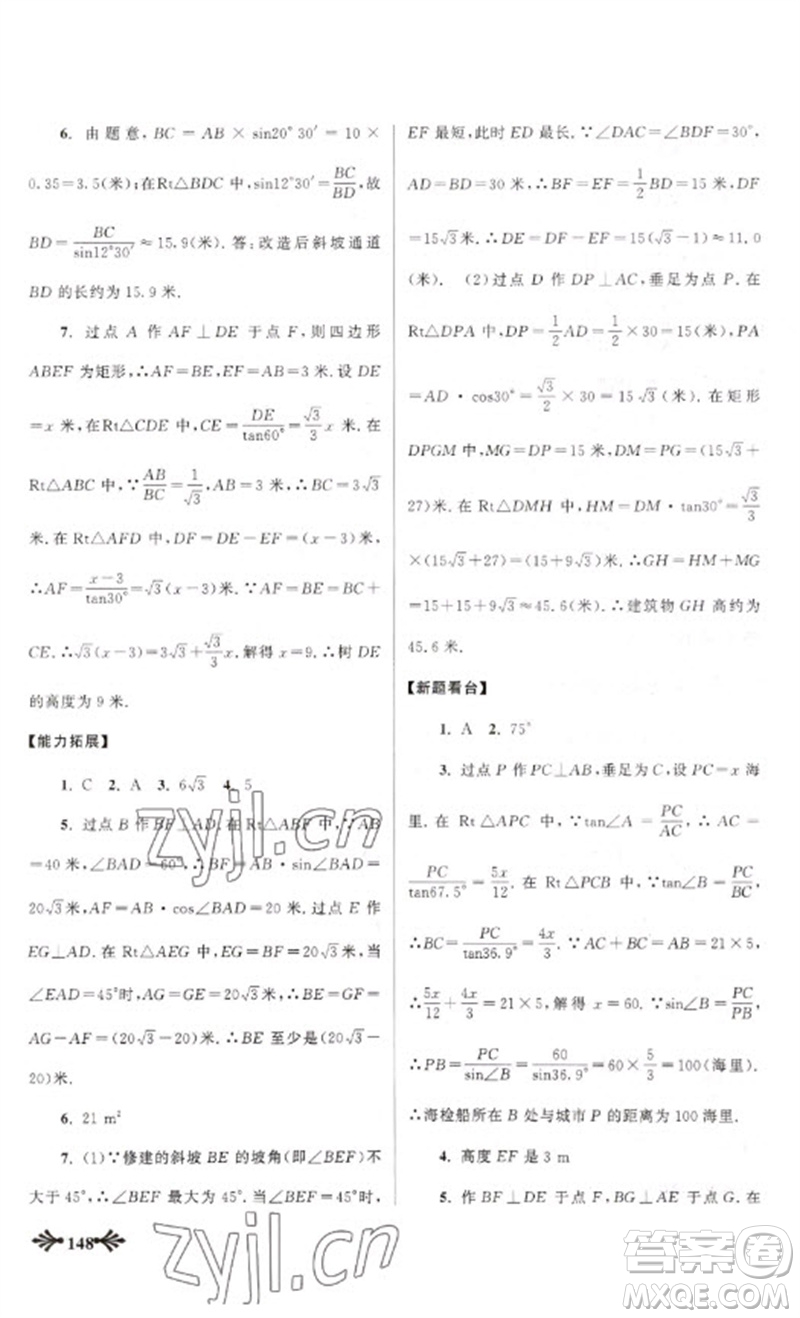 6. 由题意,BC=AB×sin20°30′=10×
0.35=3.5(米);在Rt△BDC中,sin12°30′=BC/BD,故
BD=BC/sin12°30′≈15.9(米). 答:改造后斜坡通道
BD的长约为15.9米.
7. 过点A作AF⊥DE于点F,则四边形
ABEF为矩形,∴AF=BE,EF=AB=3米. 设DE
=x米,在Rt△CDE中,CE=DE/tan60°=√3/3 x米. 在
Rt△ABC中,∵AB/BC=1/√3,AB=3米,∴BC=3√3
米. 在Rt△AFD中,DF=DE-EF=(x-3)米.
∴AF=x-3/tan30°=√3(x-3)米. ∵AF=BE=BC+
CE. ∴√3(x-3)=3√3+√3/3 x. 解得x=9. ∴树DE
的高度为9米.
【能力拓展】
1. C 2. A 3. 6√3 4. 5
5. 过点B作BF⊥AD. 在Rt△ABF中,∵AB
=40米,∠BAD=60°,∴BF=AB·sin∠BAD=
20√3米,AF=AB·cos∠BAD=20米. 过点E作
EG⊥AD. 在Rt△AEG中,EG=BF=20√3米,当
∠EAD=45°时,AG=GE=20√3米. ∴BE=GF=
AG-AF=(20√3-20)米. ∴BE至少是(20√3-
20)米.
6. 21 m²
7. (1)∵修建的斜坡BE的坡角(即∠BEF)不
大于45°,∴∠BEF最大为45°. 当∠BEF=45°时,
148
EF最短,此时ED最长. ∵∠DAC=∠BDF=30°,
AD=BD=30米,∴BF=EF=1/2 BD=15米,DF
=15√3米. ∴DE=DF-EF=15(√3-1)≈11.0
(米). (2)过点D作DP⊥AC,垂足为点P. 在
Rt△DPA中,DP=1/2 AD=1/2×30=15(米),PA
=AD·cos30°=√3/2×30=15√3(米). 在矩形
DPGM中,MG=DP=15米,DM=PG=(15√3+
27)米. 在Rt△DMH中,HM=DM·tan30°=√3/3
×(15√3+27)=(15+9√3)米. ∴GH=HM+MG
=15+15+9√3≈45.6(米). ∴建筑物GH高约为
45.6米.
【新题看台】
1. A 2. 75°
3. 过点P作PC⊥AB,垂足为C,设PC=x海
里. 在Rt△APC中,∵tan∠A=PC/AC,∴AC=
PC/tan67.5°=5x/12. 在Rt△PCB中,∵tan∠B=PC/BC,
∴BC=PC/tan36.9°=4x/3. ∵AC+BC=AB=21×5,
∴5x/12+4x/3=21×5,解得x=60. ∵sin∠B=PC/PB,
∴PB=PC/sin∠B=60/sin36.9°=60×5/3=100(海里).
∴海检船所在B处与城市P的距离为100海里.
4. 高度EF是3 m
5. 作BF⊥DE于点F,BG⊥AE于点G. 在
zyjl.cn
zyjl.cn
答案卷
MXQE.COM